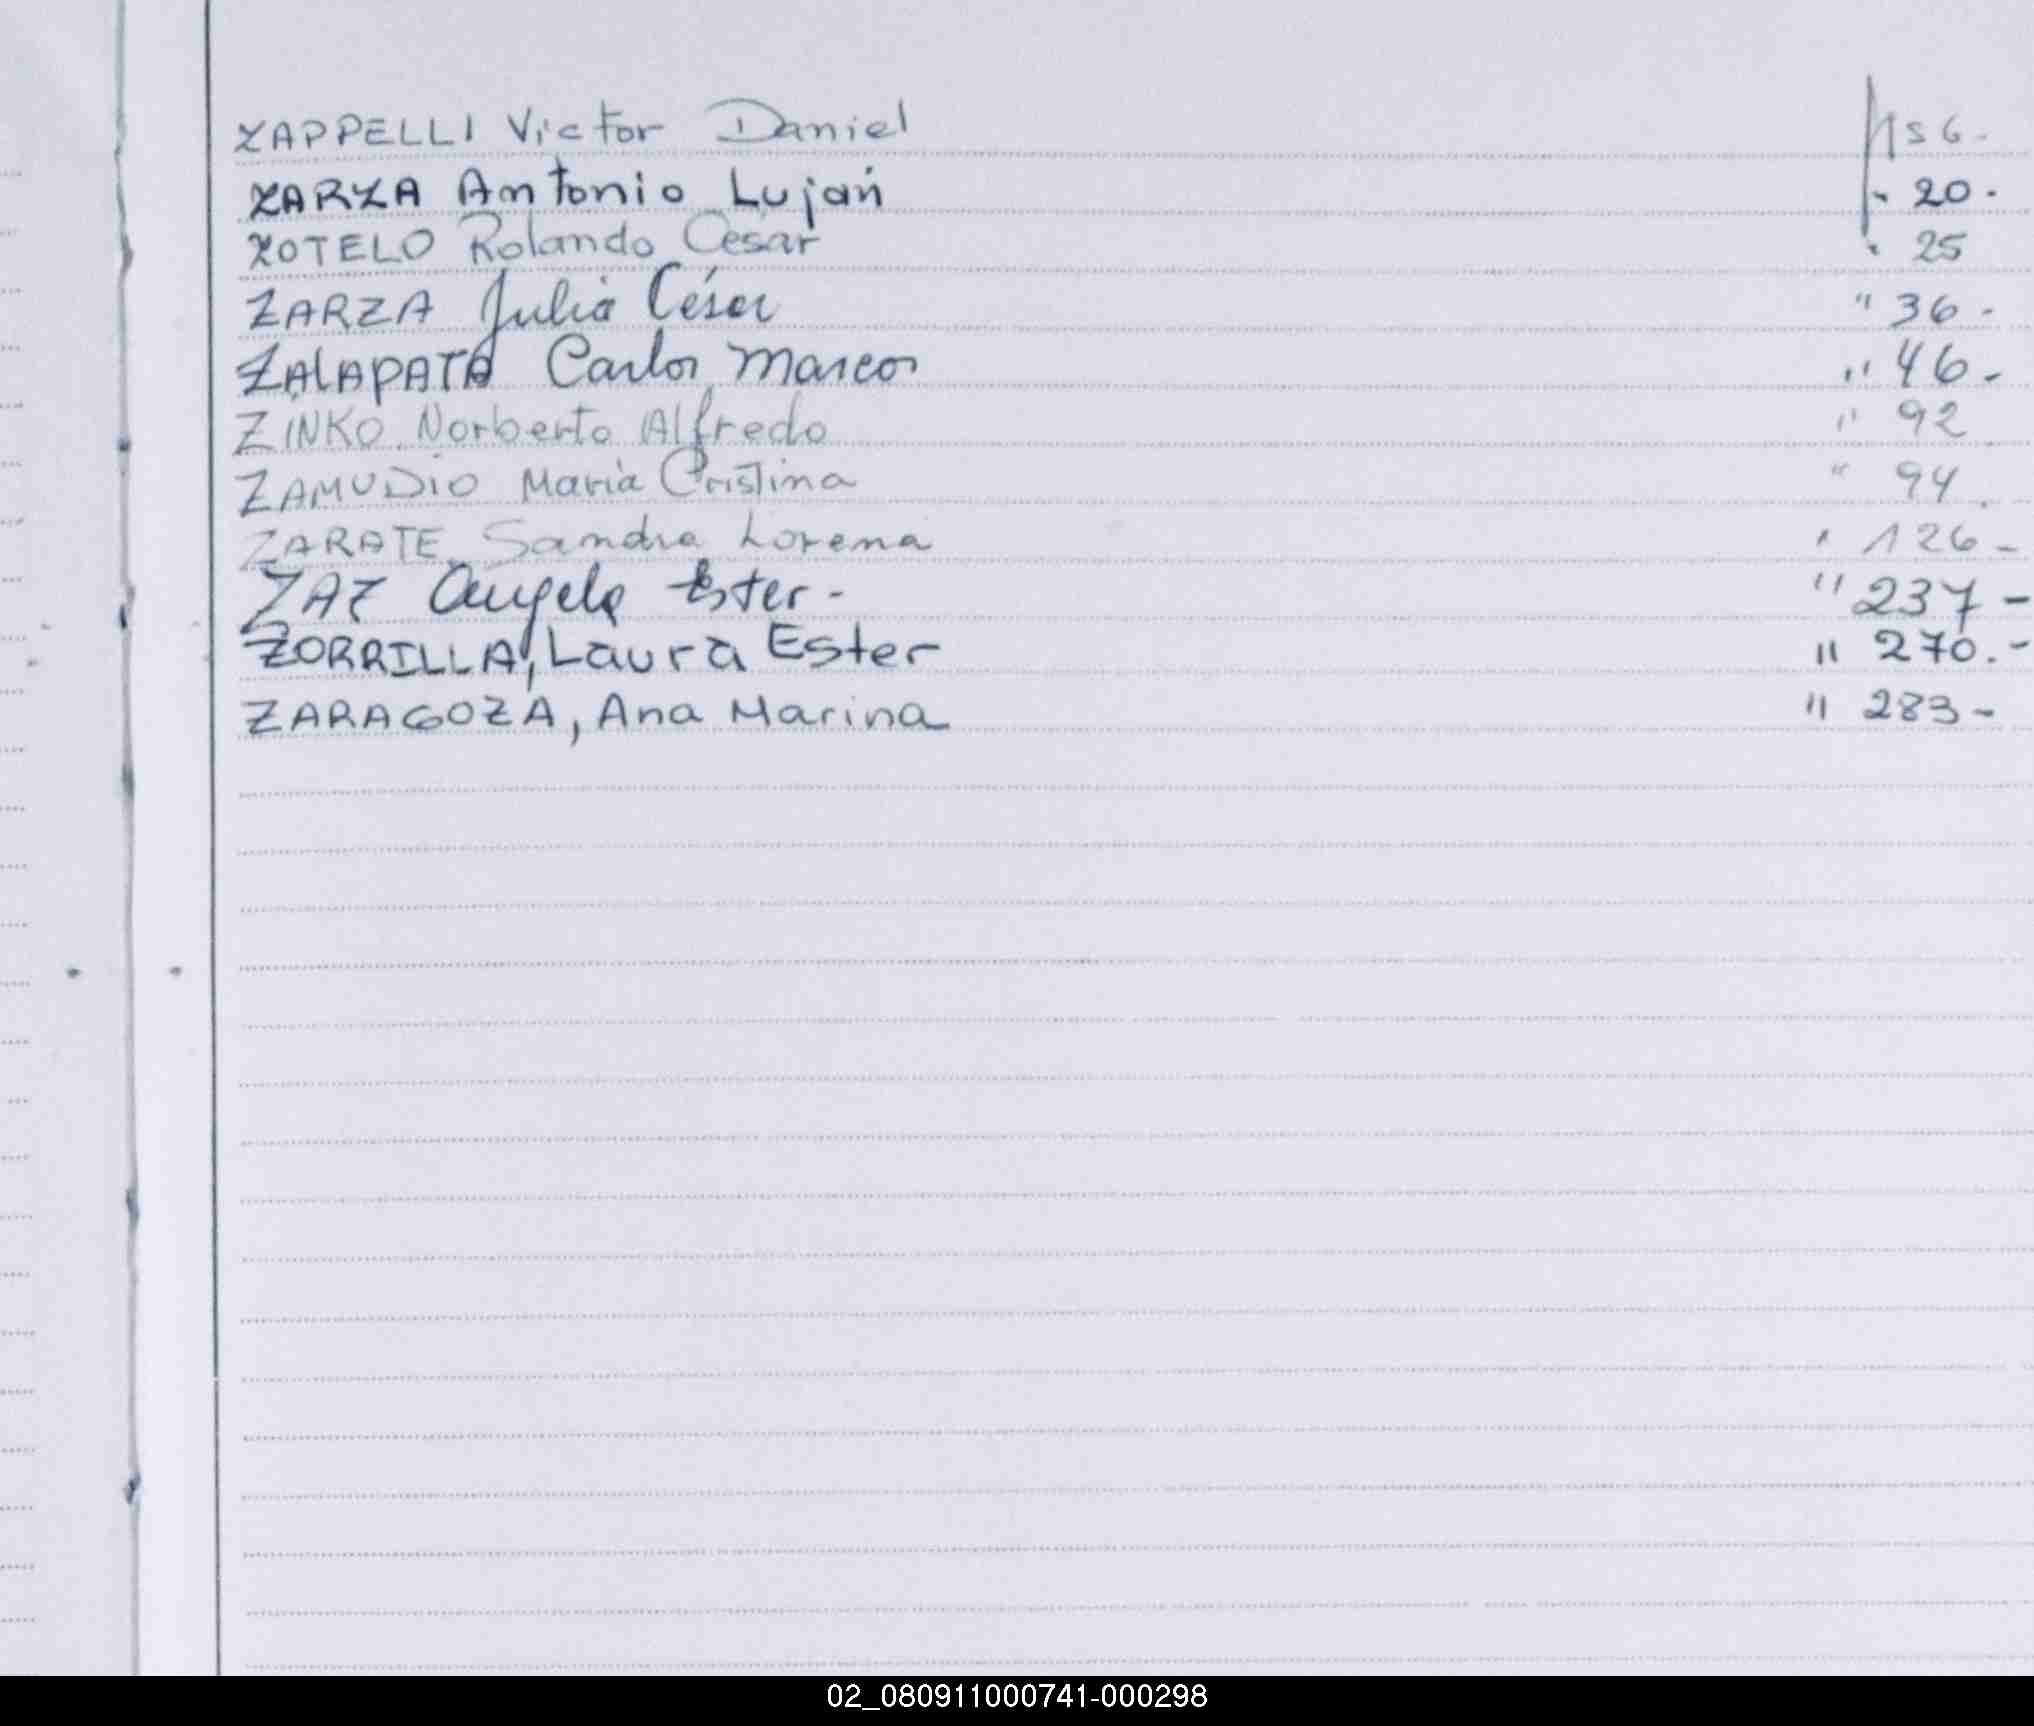 ZAPPELLI Victor Daniel hs 6.-
ZARZA Antonio Luján " 20.
ZOTELO Rolando César " 25
ZARZA Julio César " 36-
ZALAPATA Carlos Marcos " 46-
ZINKO Norberto Alfredo " 92
ZAMUDIO María Cristina " 94.
ZARATE Sandra Lorena " 126-
ZAZ Angela Ester- " 237-
ZORRILLA, Laura Ester " 270.-
ZARAGOZA, Ana Marina " 283-
02_080911000741-000298